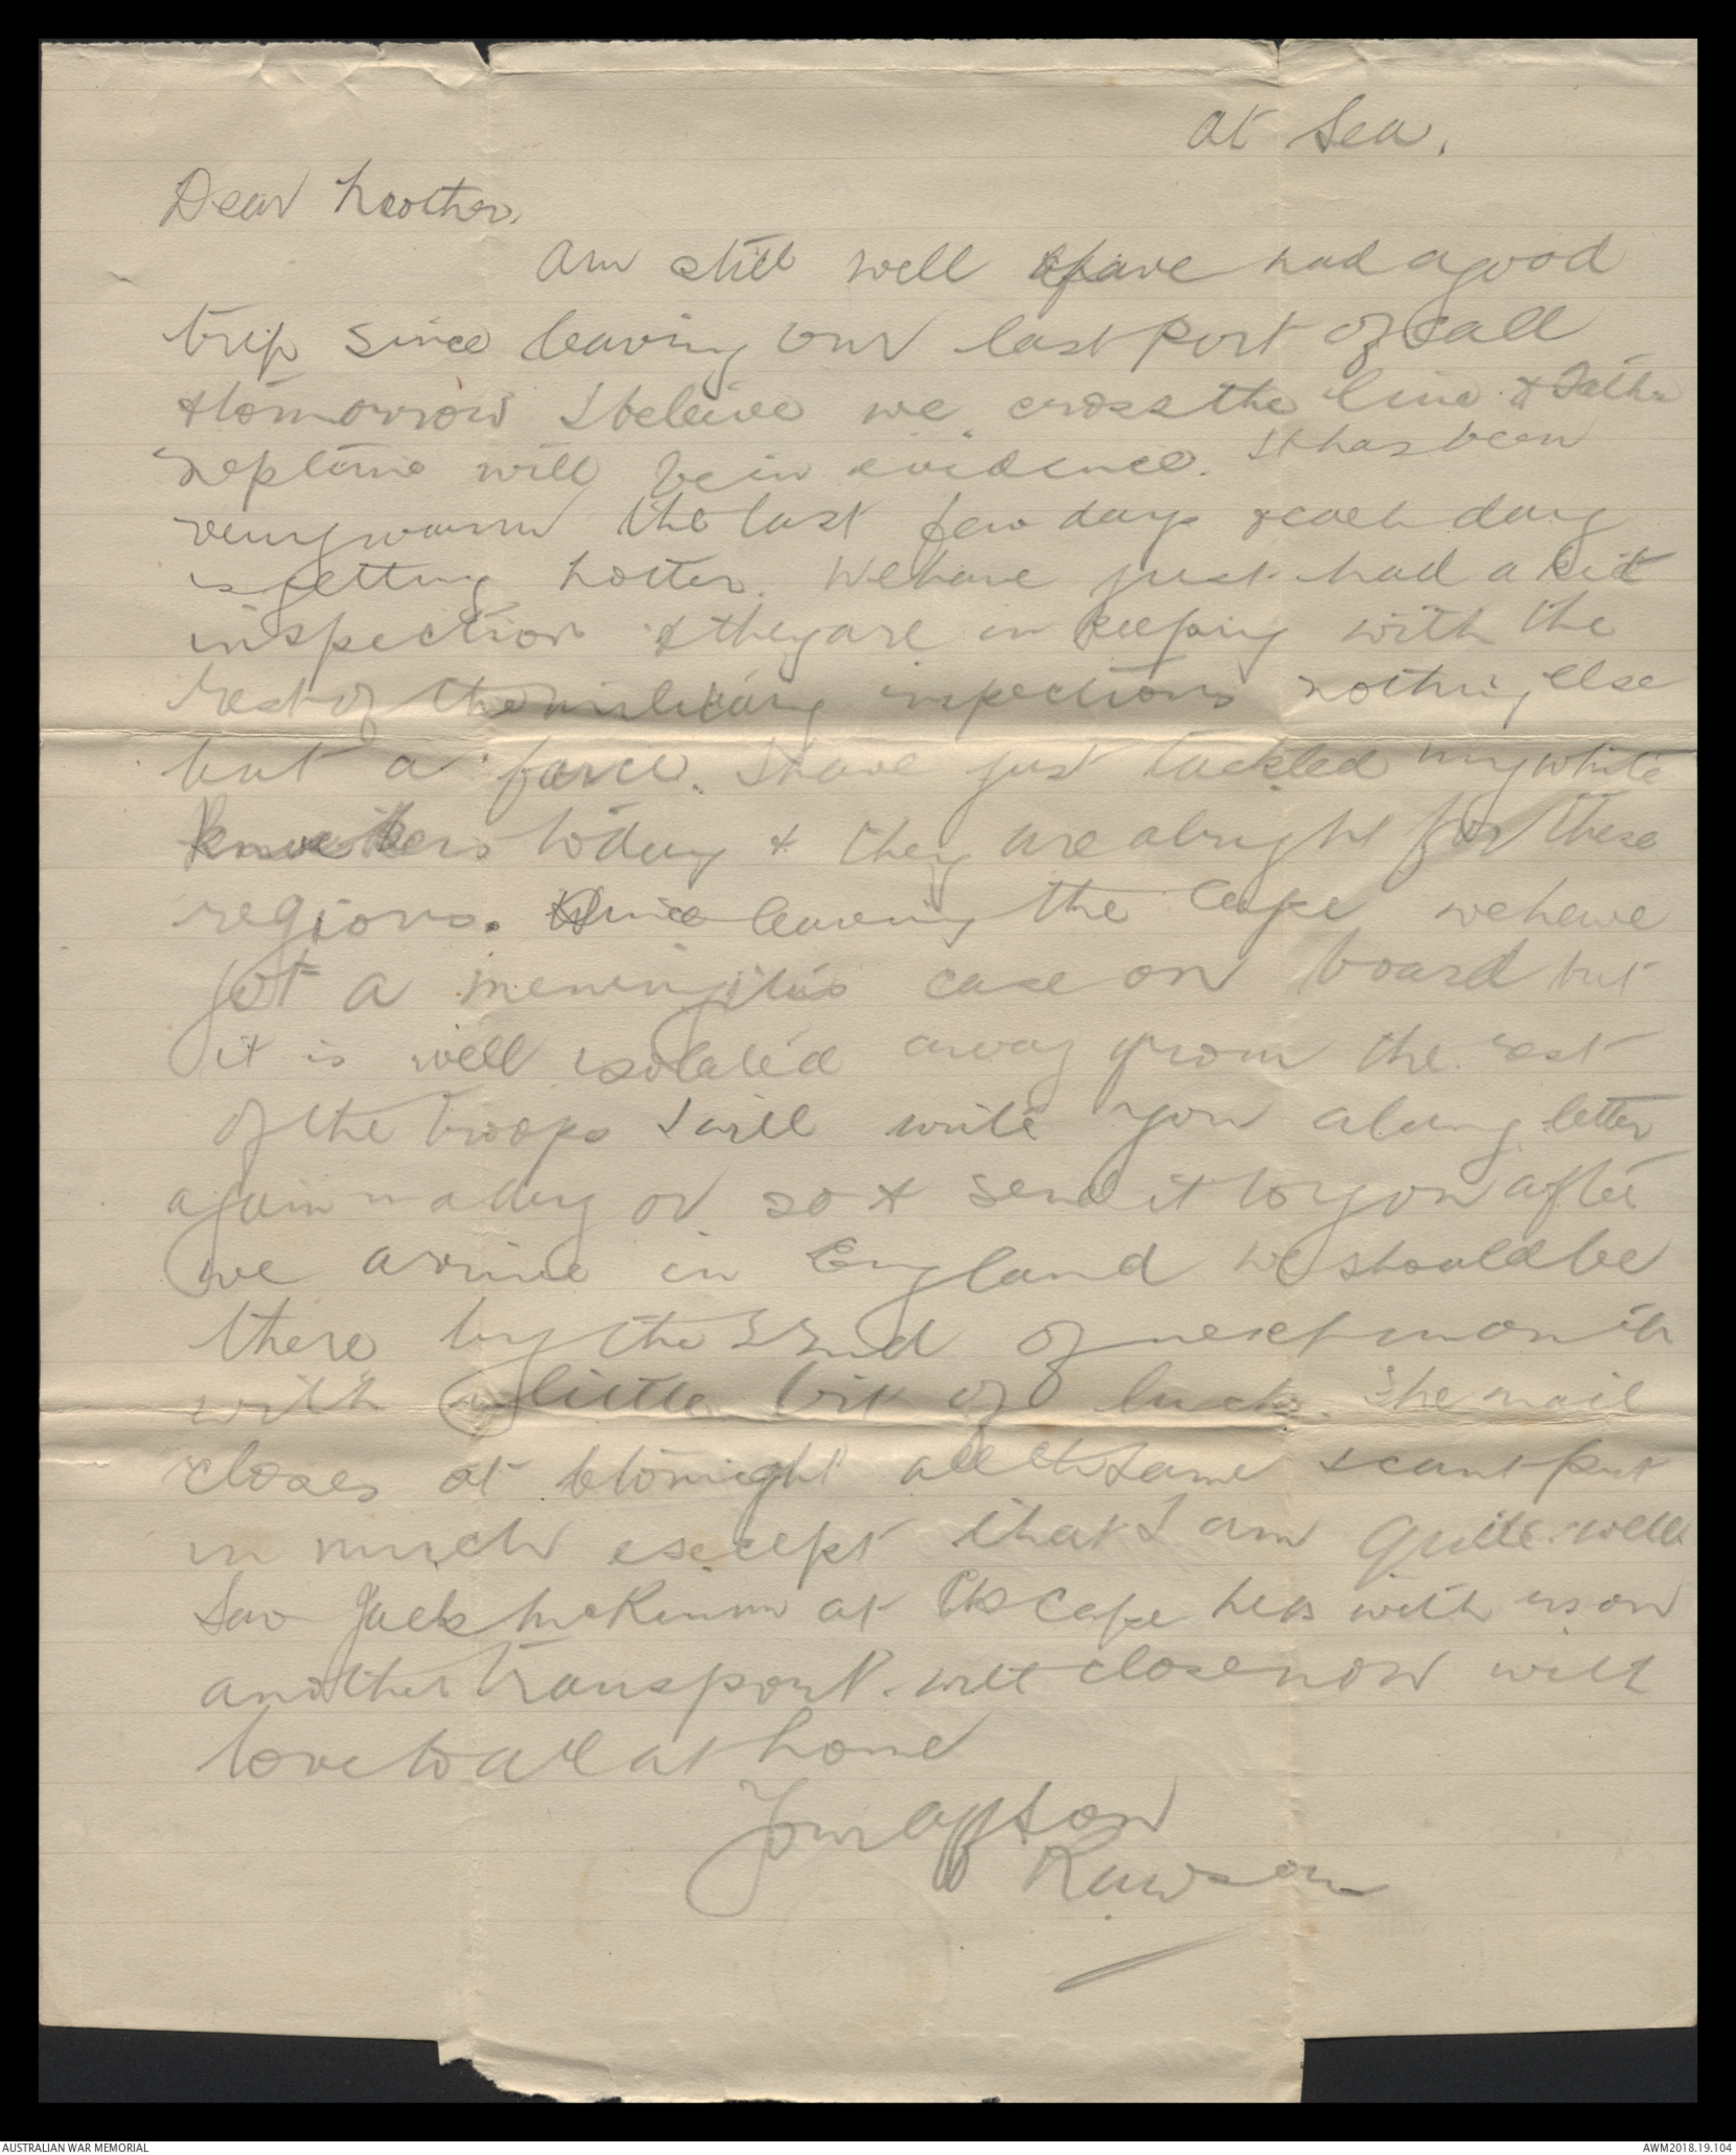 At Sea.
Dear Mother,
Am still well & have had a good
trip since leaving our last port of call
& tomorrow I beleive we cross the line & Father
Neptune will be in evidence. It has been
very warm the last few days & each day
is getting hotter. We have just had a kit
inspection & they are in keeping with the
rest of the military inspections nothing else
but a farce. I have just tackled my white
today & they are alright for these
regions. Since leaving the Cape we have
got a meningitis case on board but
it is well isolated away from the rest
of the troops I will write you a long letter
again in a day or so & send it to you after
we arrive in England we should be
there by the 22nd of next month
with a little bit of luck. The mail
closes at tonight all the same I cant put
in much except that I am quite well
Saw Jack McKinnn at the Cape hes with us on
another transport. will close now with
love to all at home
Your aff son
Rawson
AUSTRALIAN WAR MEMORIAL
AWM2018.19.104